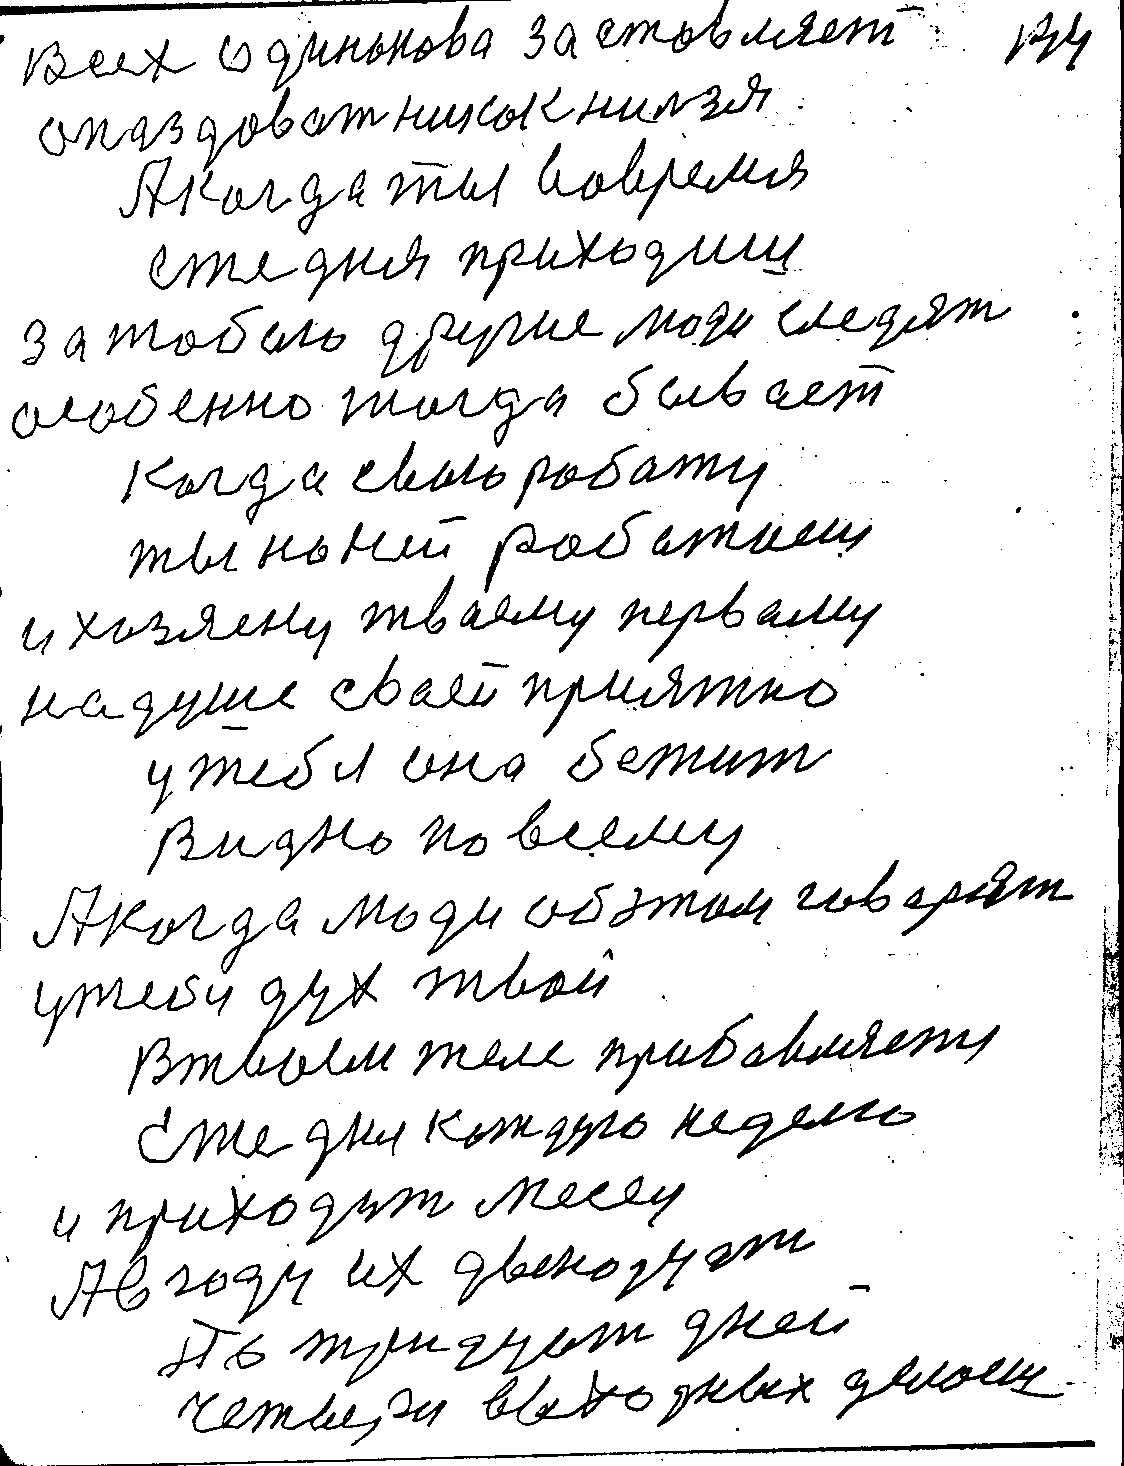 Всех одинькова заставляет
опаздоват никак нилзя
Акогда ты вовремя
Еже дня приходиш
За тобою другие люди следят
особенно тогда бывает
Когда свою работу
ты на ней работаеш
и хозяену тваему первому
на душе сваей приятно
у тебя она бежит
Видно по всему
Акогда люди обэтом говарят
утебя дух твой
Втвоем теле прибавляет
Еже дня каждую неделю
и приходит месец
Ав году их двенодцат
По тридцат дней
четыри выходных делаеш